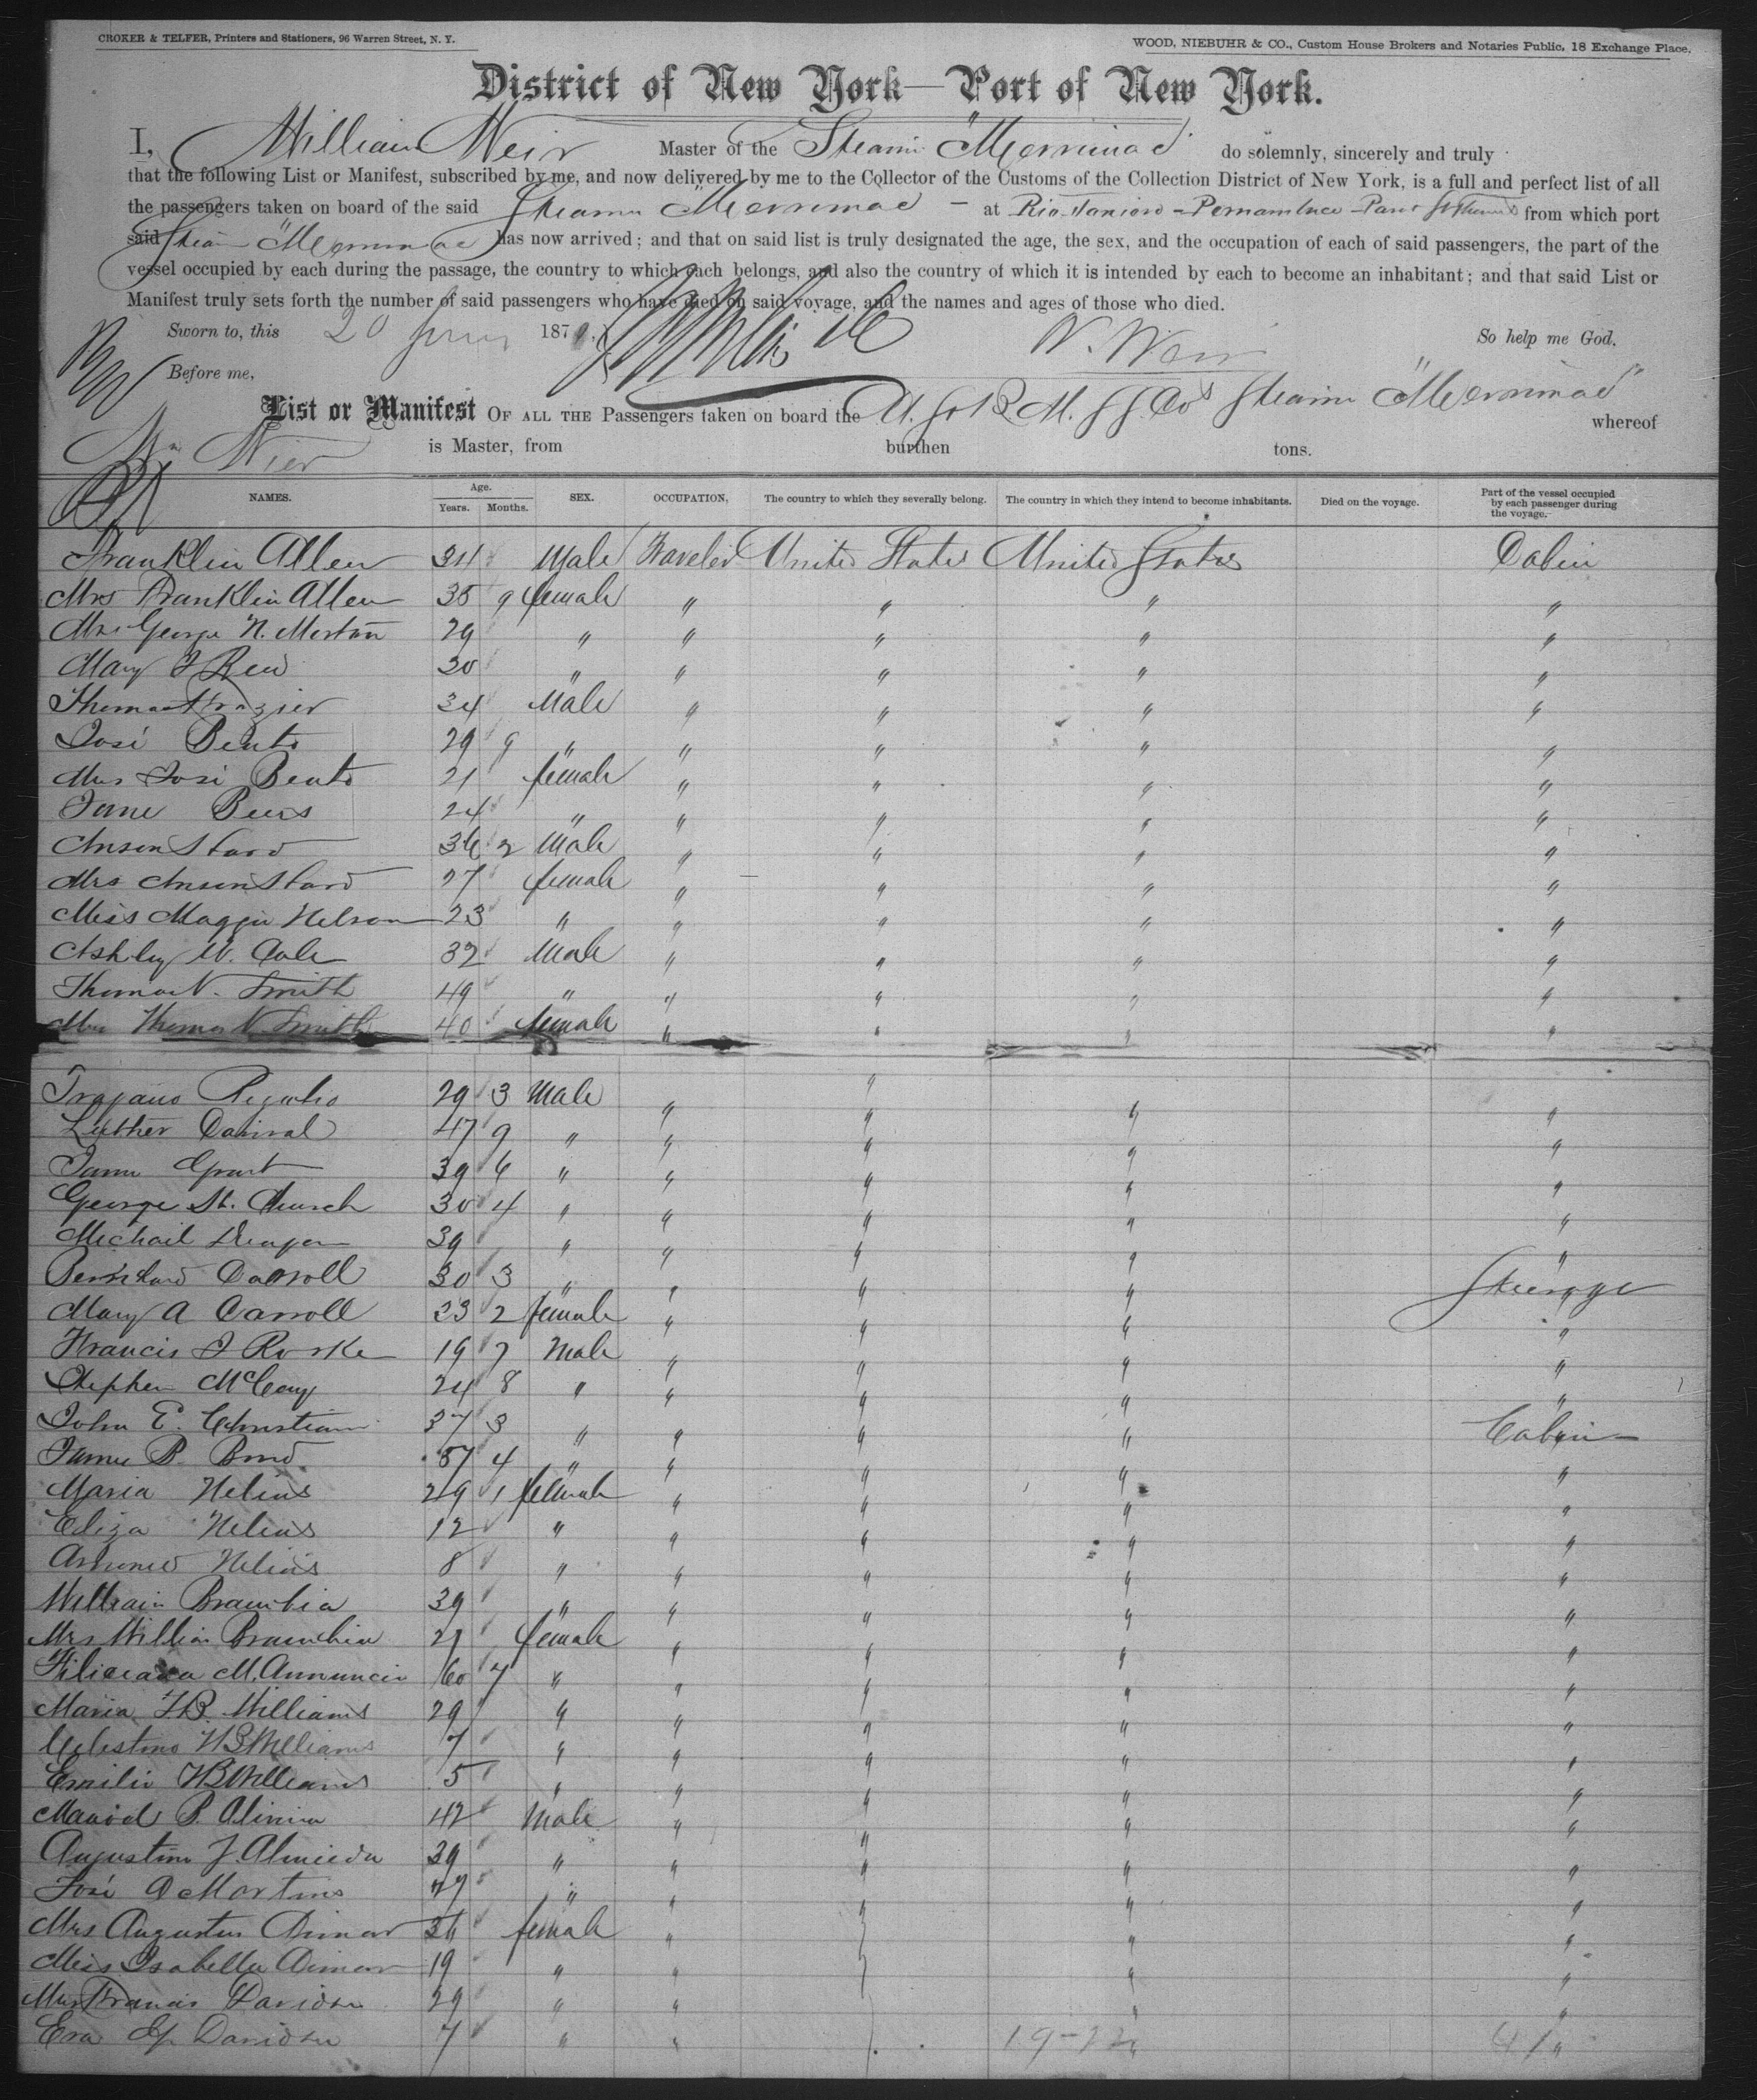 CROKER & TELFER, Printers and Stationers, 96 Warren Street, N. Y.
WOOD, NIEBUHR & CO., Custom House Brokers and Notaries Public, 18 Exchange Place.
District of New York—Port of New York.
I, William Weir Master of the Steamr "Merrimac" do solemnly, sincerely and truly
that the following List or Manifest, subscribed by me, and now delivered by me to the Collector of the Customs of the Collection District of New York, is a full and perfect list of all
the passengers taken on board of the said Steamr "Merrimac" - at Rio Janiero - Pernambuco - Para St Thomas from which port
said Steamr "Merrimac has now arrived; and that on said list is truly designated the age, the sex, and the occupation of each of said passengers, the part of the
vessel occupied by each during the passage, the country to which each belongs, and also the country of which it is intended by each to become an inhabitant; and that said List or
Manifest truly sets forth the number of said passengers who have died on said voyage, and the names and ages of those who died.
Sworn to, this 20 187 W. Weir So help me God.
Before me,
List or Manifest OF ALL THE Passengers taken on board the U.S. & B. M. S.S. Cos Steamr "Merrimac" whereof
Wm Wier is Master, from burthen tons.
NAMES. Age. Years. Months. SEX. OCCUPATION, The country to which they severally belong. The country in which they intend to become inhabitants. Died on the voyage. Part of the vessel occupied by each passenger during the voyage.
Franklin Allen 34 Male Traveler United States United States Cabin
Mrs Franklin Allen 35 9 female " " " "
Mrs George N. Morton 29 " " " " "
Mary J Reid 30 " " " " "
Thomas Frazier 34 Male " " " "
José Bento 29 9 " " " " "
Mrs José Bento 21 female " " " "
Jane Beers 24 " " " " "
Anson Stard 36 2 Male " " " "
Mrs Anson Stard 27 female " " " "
Miss Maggie Nelson 23 " " " " "
Ashley W. Cole 32 Male " " " "
Thomas N. Smith 49 " " " " "
Mrs Thomas N. Smith 40 female " " " "
Trajano 29 3 Male " " " "
Luther 47 9 " " " " "
Grant 39 6 " " " " "
George St. Church 30 4 " " " " "
Michail 39 " " " " "
Bernard Carroll 30 3 " " " " Steerage
Mary A Carroll 23 2 female " " " "
Francis J Rorke 19 7 Male " " " "
Stephen 24 8 " " " " "
John E. Christian 37 3 " " " " Cabin
James B. Bond 57 4 " " " " "
Maria Nelius 29 1 female " " " "
Eliza Nelius 12 " " " " "
Nelius 8 " " " " "
William 39 " " " " "
Mrs William 21 female " " " "
M. Annuncia 60 7 " " " " "
Maria F.B. Williams 29 " " " " "
Celestino F B Williams 7 " " " " "
Emilie F B Williams 5 " " " " "
42 Male " " " "
Augustino J. Almeida 29 " " " " "
José A Martins 27 " " " " "
Mrs Augustus 36 female " " " "
Miss Isabella 19 " " " "
Mrs Francis Davidson 29 " " " "
Eva Davidson 7 " " 19-22 " 41 "